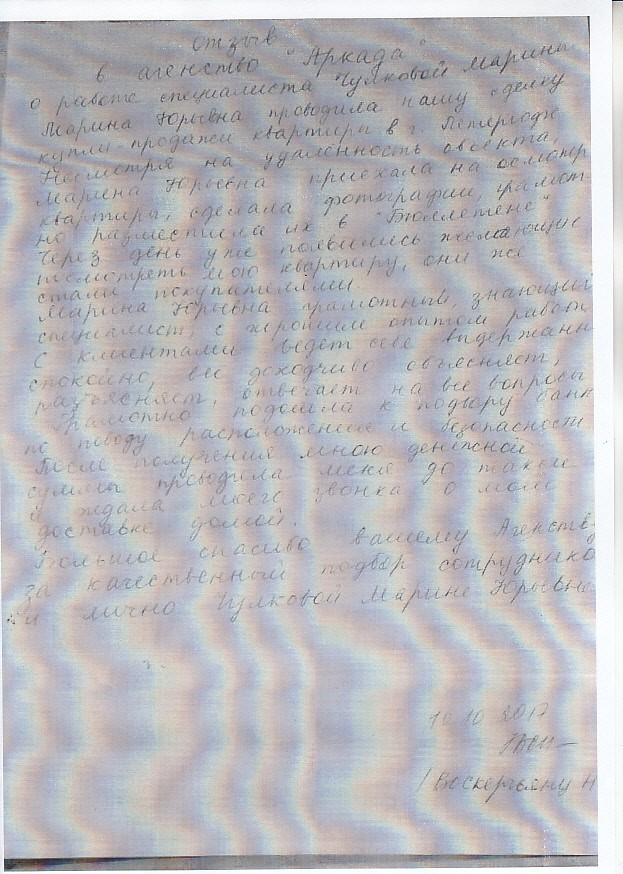 Отзыв
в агенство "Аркада"
о работе специалиста Чулковой Марины
Марина Юрьевна проводила нашу сделку
купли-продажи квартиры в г. Петергоф.
Несмотря на удалённость объекта,
Марина Юрьевна приехала на осмотр
квартиры, сделала фотографии, грамот-
но разместила их в "Бюллетене"
Через день уже появились желающие
посмотреть мою квартиру, они же
стали покупателями.
Марина Юрьевна грамотный, знающий
специалист, с хорошим опытом работы
С клиентами ведет себя выдержанн
спокойно, всё доходчиво объясняет,
разъясняет, отвечает на все вопросы
Грамотно подошла к подбору банк
по поводу расположения и безопасности
После получения мною денежной
суммы проводила меня до такси
и ждала моего звонка о моей
доставке домой.
Большое спасибо вашему Агенств
за качественный подбор сотруднико
и лично Чулковой Марине Юрьевне
10.10.2017
/ Н